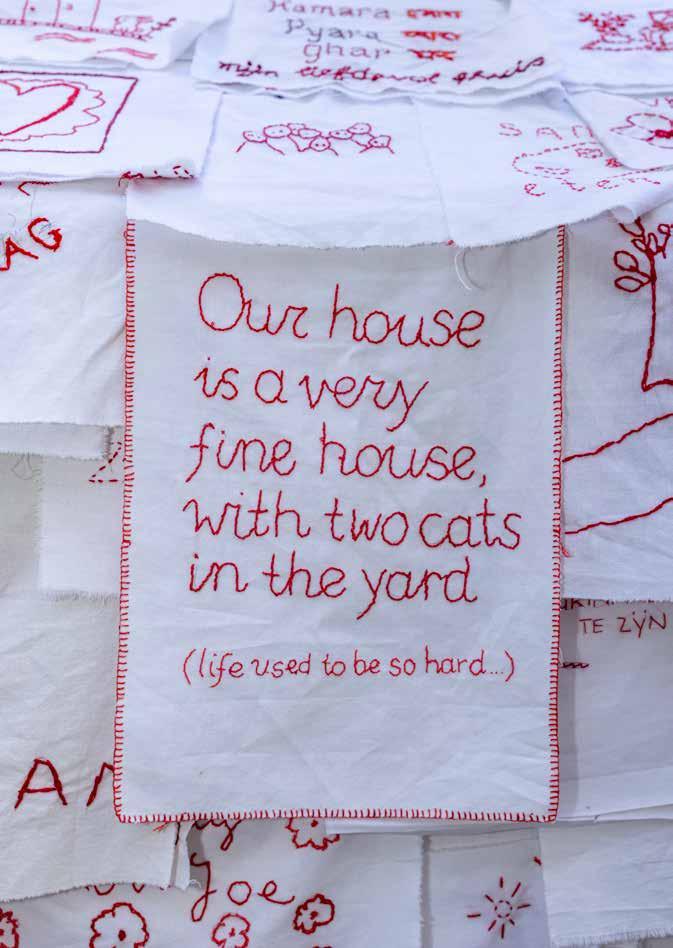 Hamara हमारा
Pyara प्यारा
Ghar घर
AG
Our house
is a very
fine house,
with two cats
in the yard
(life used to be so hard...)
TE ZŸN
Joe